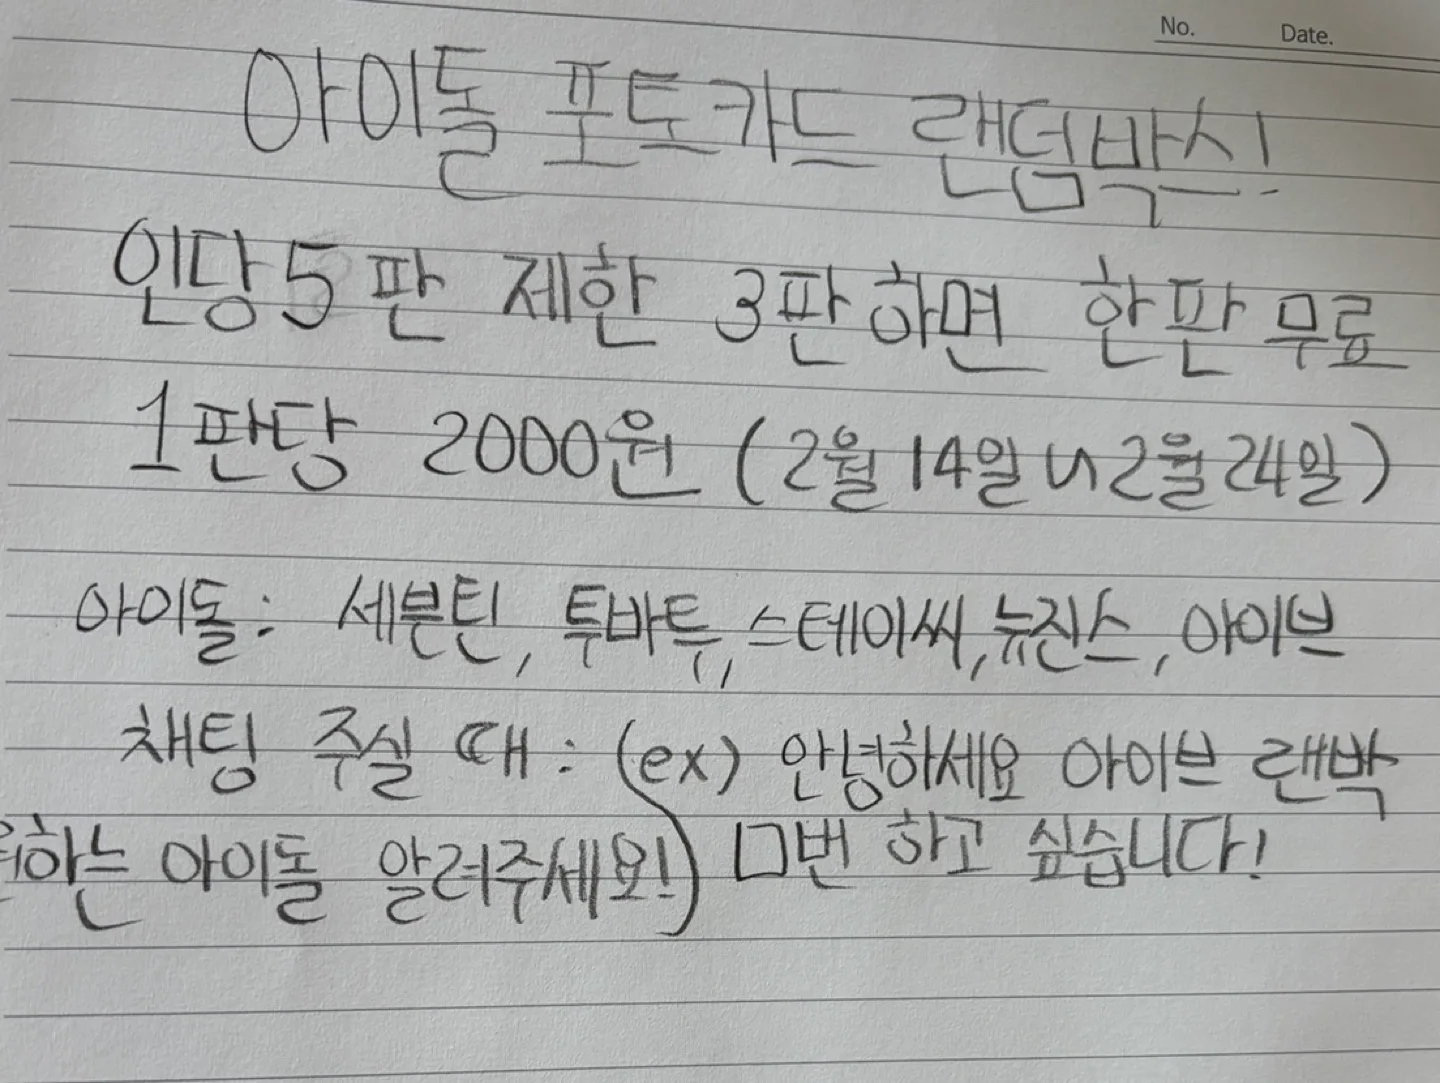 No. Date.
아이돌 포토카드 랜덤박스!
인당 5판 제한 3판하면 한판무료
1판당 2000원 (2월 14일 ~ 2월 24일)
아이돌: 세븐틴, 투바투, 스테이씨, 뉴진스, 아이브
채팅 주실 때: (ex) 안녕하세요 아이브 랜박
아이돌 알려주세요!) ㅁ번 하고 싶습니다!